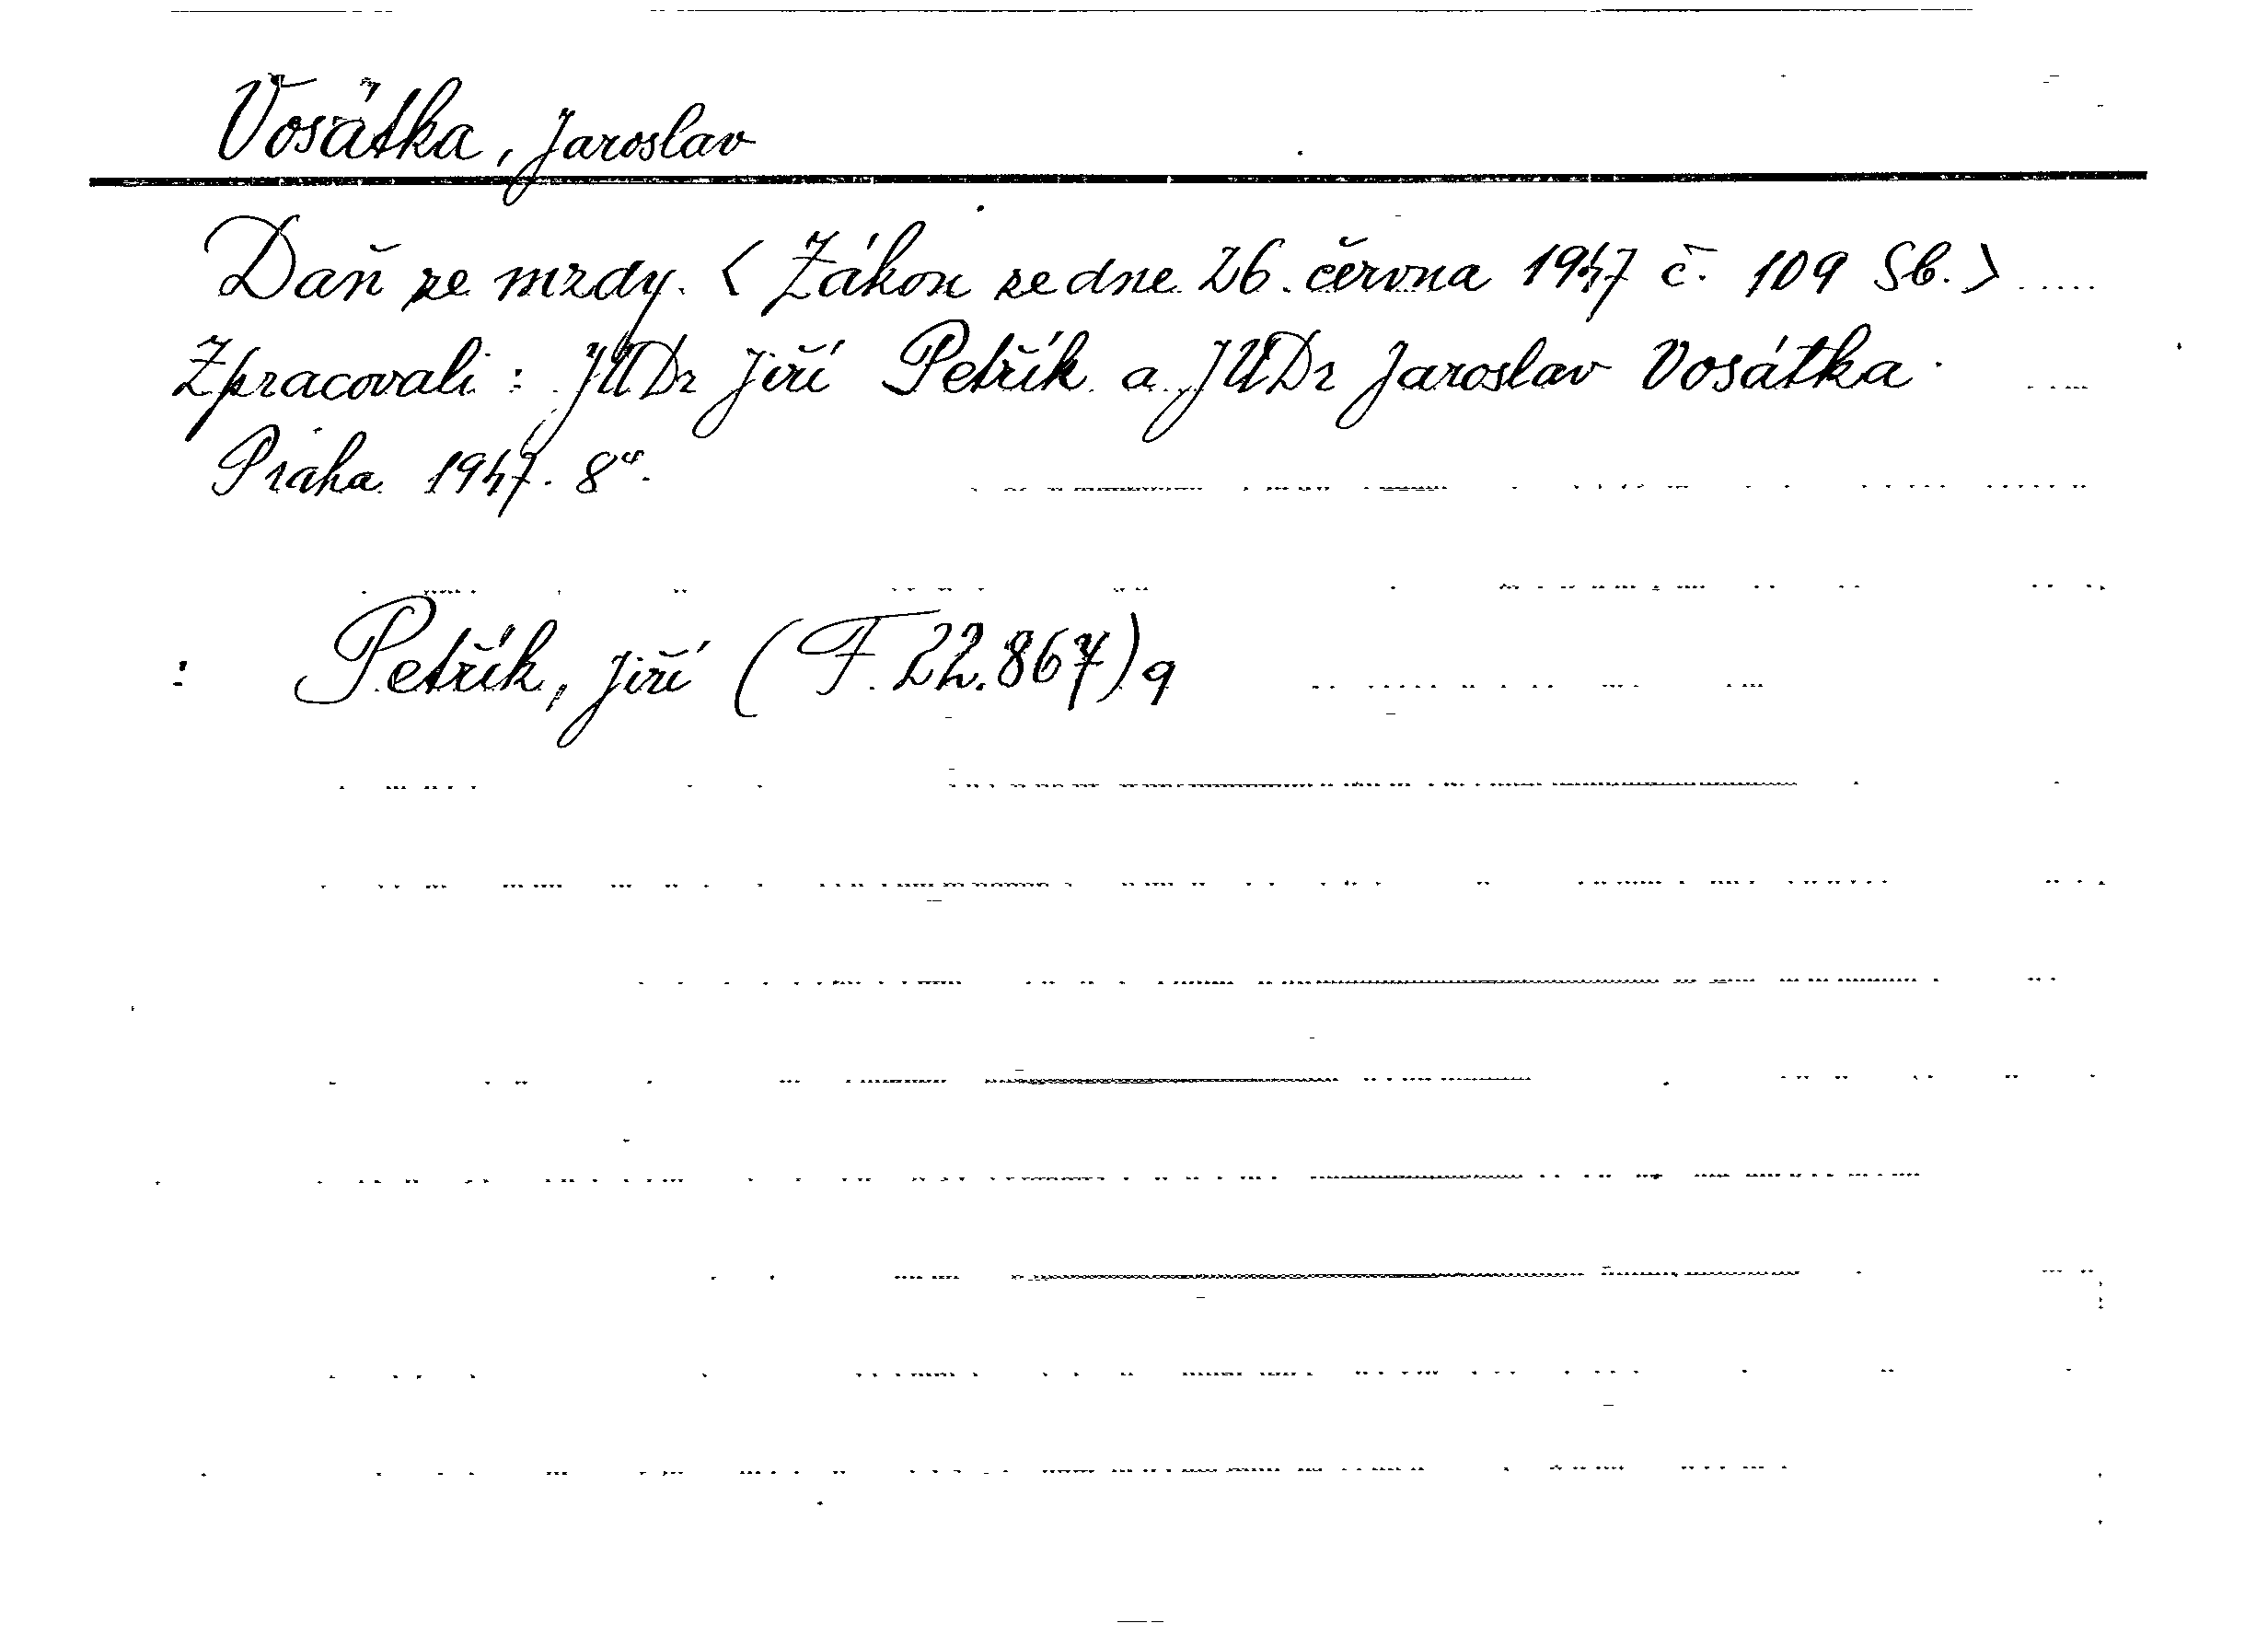 Vosátka, Jaroslav
Daň ze mzdy. < Zákon ze dne 26. června 1947 č. 109 Sb. >
Zpracovali : JUDr Jiří Petřík a JUDr Jaroslav Vosátka.
Praha 1947. 8°.
: Petřík, Jiří ( F. 22.867) q